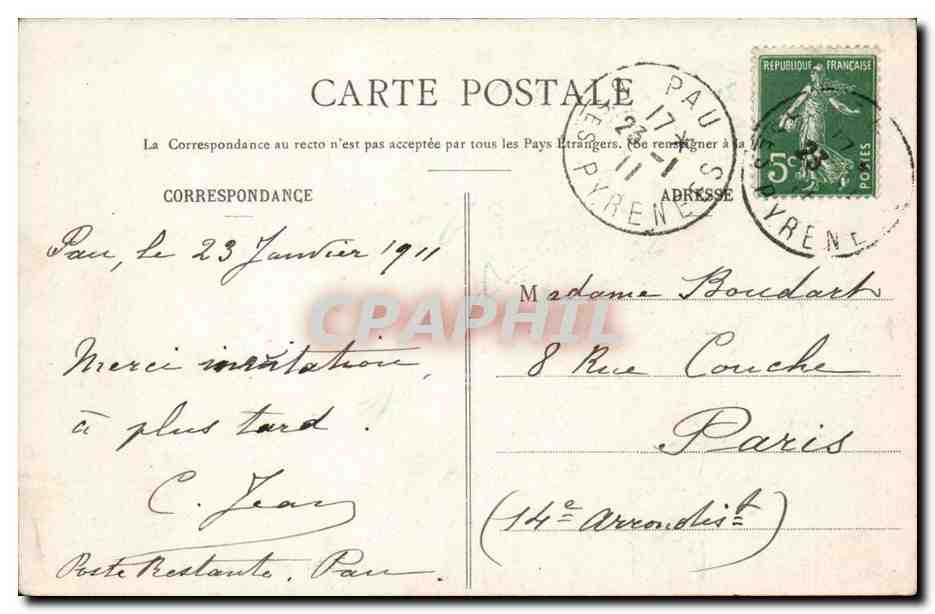 CARTE POSTALE
La Correspondance au recto n'est pas acceptée par tous les Pays Etrangers. (Se renseigner à la
CORRESPONDANCE
Pau, le 23 Janvier 1911
Merci invitation,
à plus tard.
C. Jean
Poste Restante. Pau.
ADRESSE
Madame Boudart
8 Rue Couche
Paris
(14e Arrondist)
PAU
17*
23-1
11
BSES PYRENEES
REPUBLIQUE FRANÇAISE
5c
POSTES
17
23
SES PYRENE
CPAPHIL